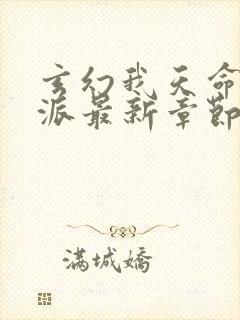 玄幻我天命
派最新章節
满城嬌